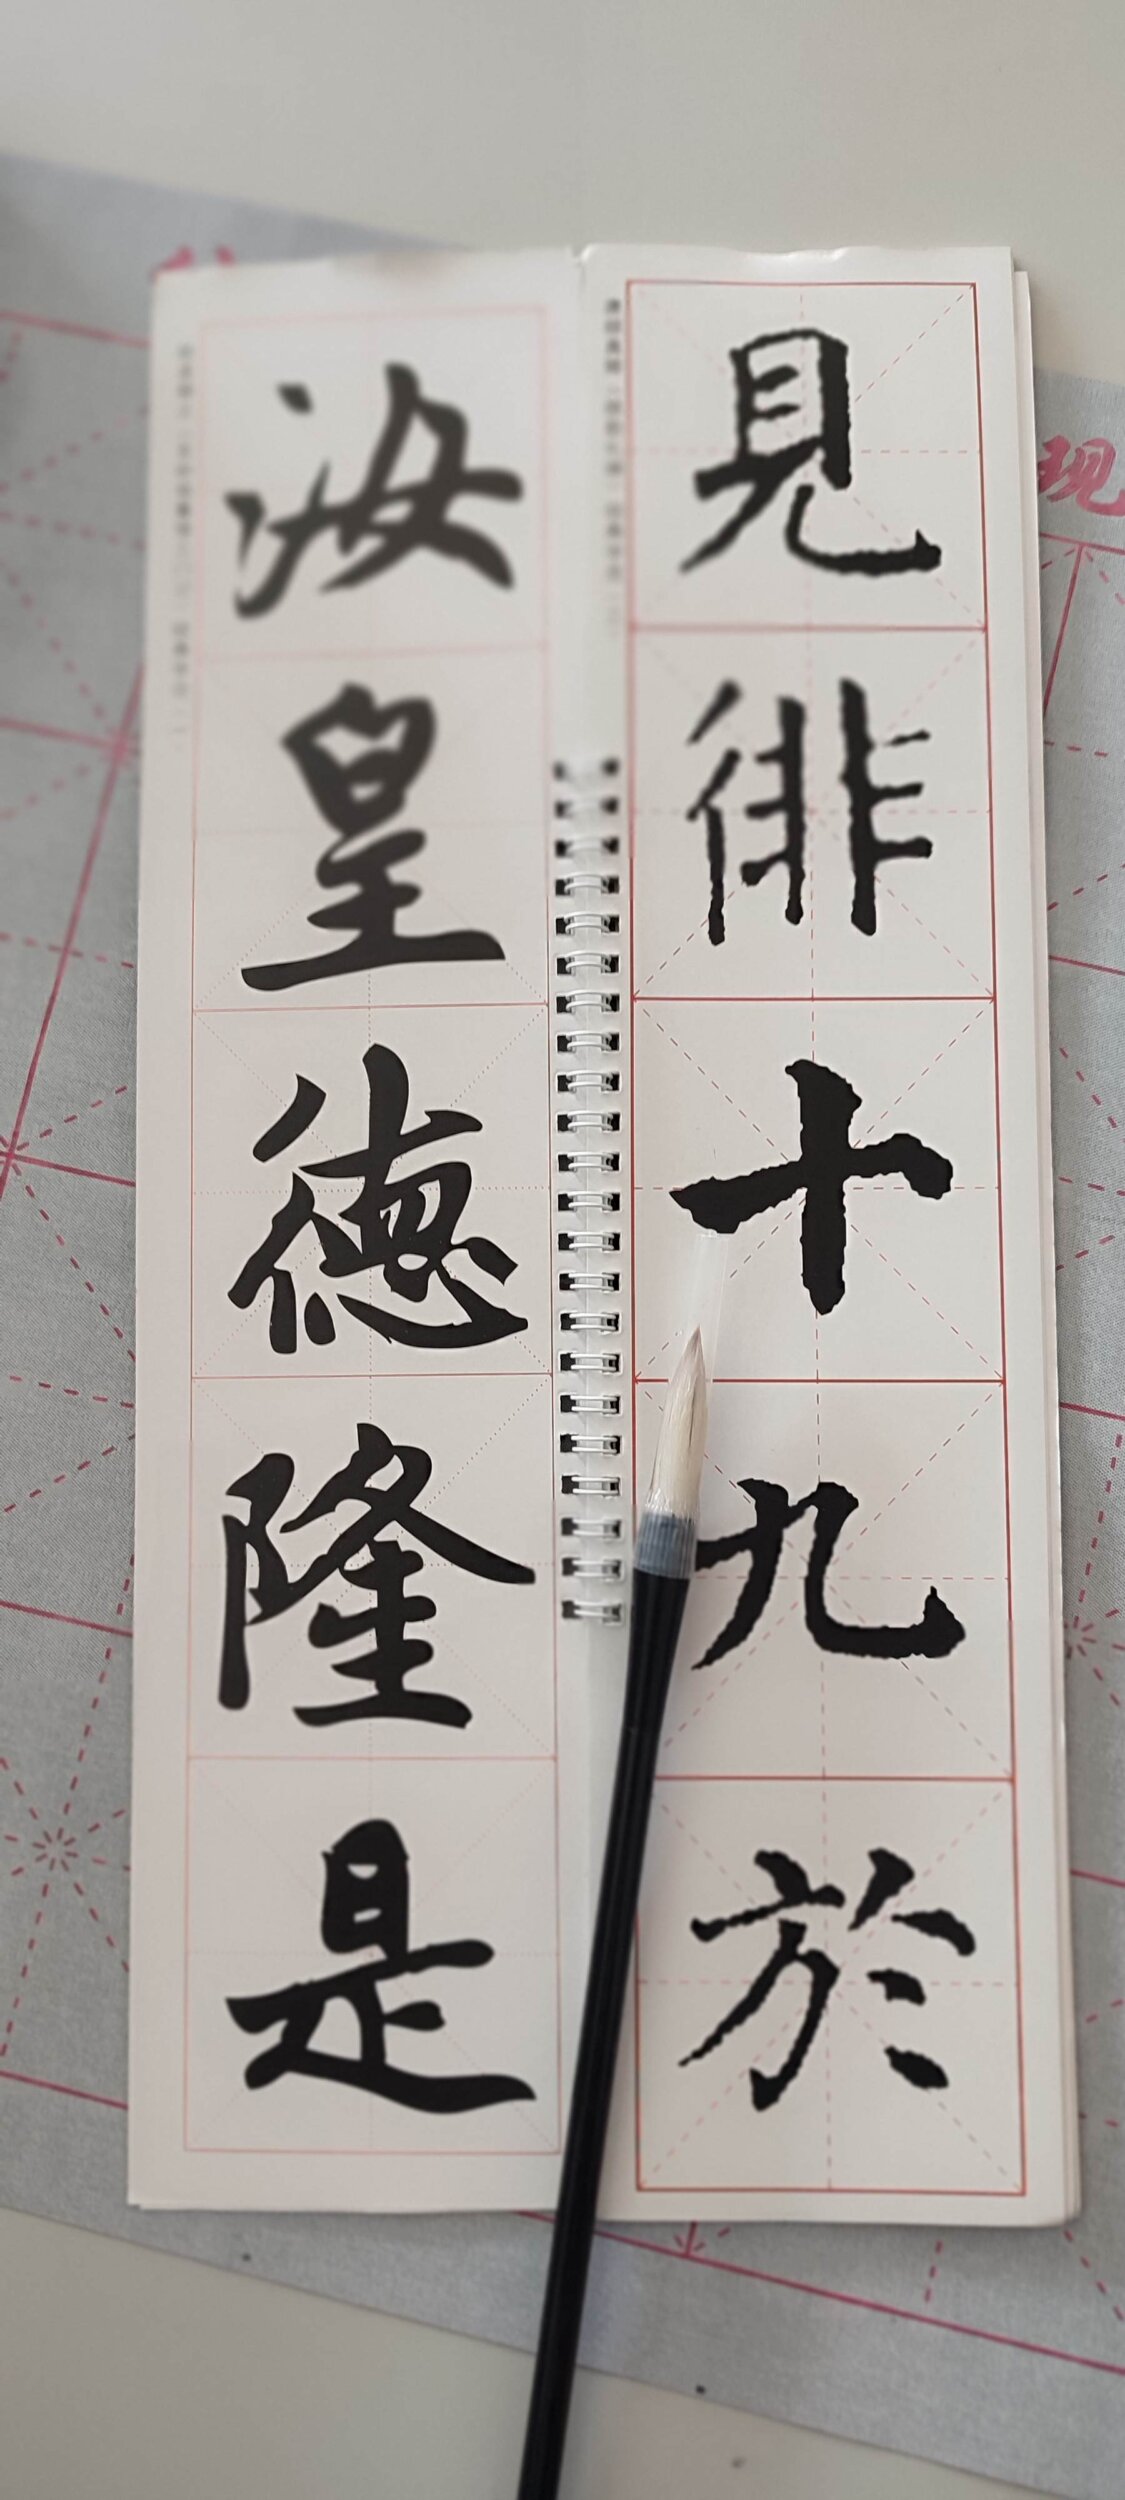 見徘十九於
汝皇德隆是
现